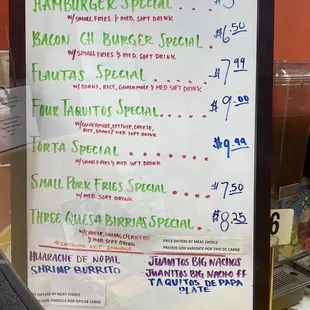 HAMBURGER SPECIAL
W/SMALL FRIES & MED. SOFT DRINK
BACON CH BURGER SPECIAL. $6.50
W/SMALL FRIES & MED. SOFT DRINK
FLAUTAS SPECIAL .... $7.99
W/BEANS, RICE, GUACAMOLE & MED SOFT DRINK
FOUR TAQUITOS SPECIAL.... $9.00
W/GUACAMOLE, LETTUCE, CHEESE,
RICE, BEANS & MED. SOFT DRINK
TORTA SPECIAL ...... $9.99
W/SMALL FRIES & MED. SOFT DRINK
SMALL PORK FRIES SPECIAL .. $7.50
W/MED. SOFT DRINK
THREE QUESABIRRIAS SPECIAL.. $8.25
& MED. SOFT DRINK
PRICE DIFFERS BY MEAT CHOICE
PRECIOS SON VARIOS POR TIPO DE CARNE
HUARACHE DE NOPAL
SHRIMP BURRITO
JUANITOS BIG NACHOS
JUANITOS BIG NACHO FF
TAQUITOS DE PAPA
PLATE
6